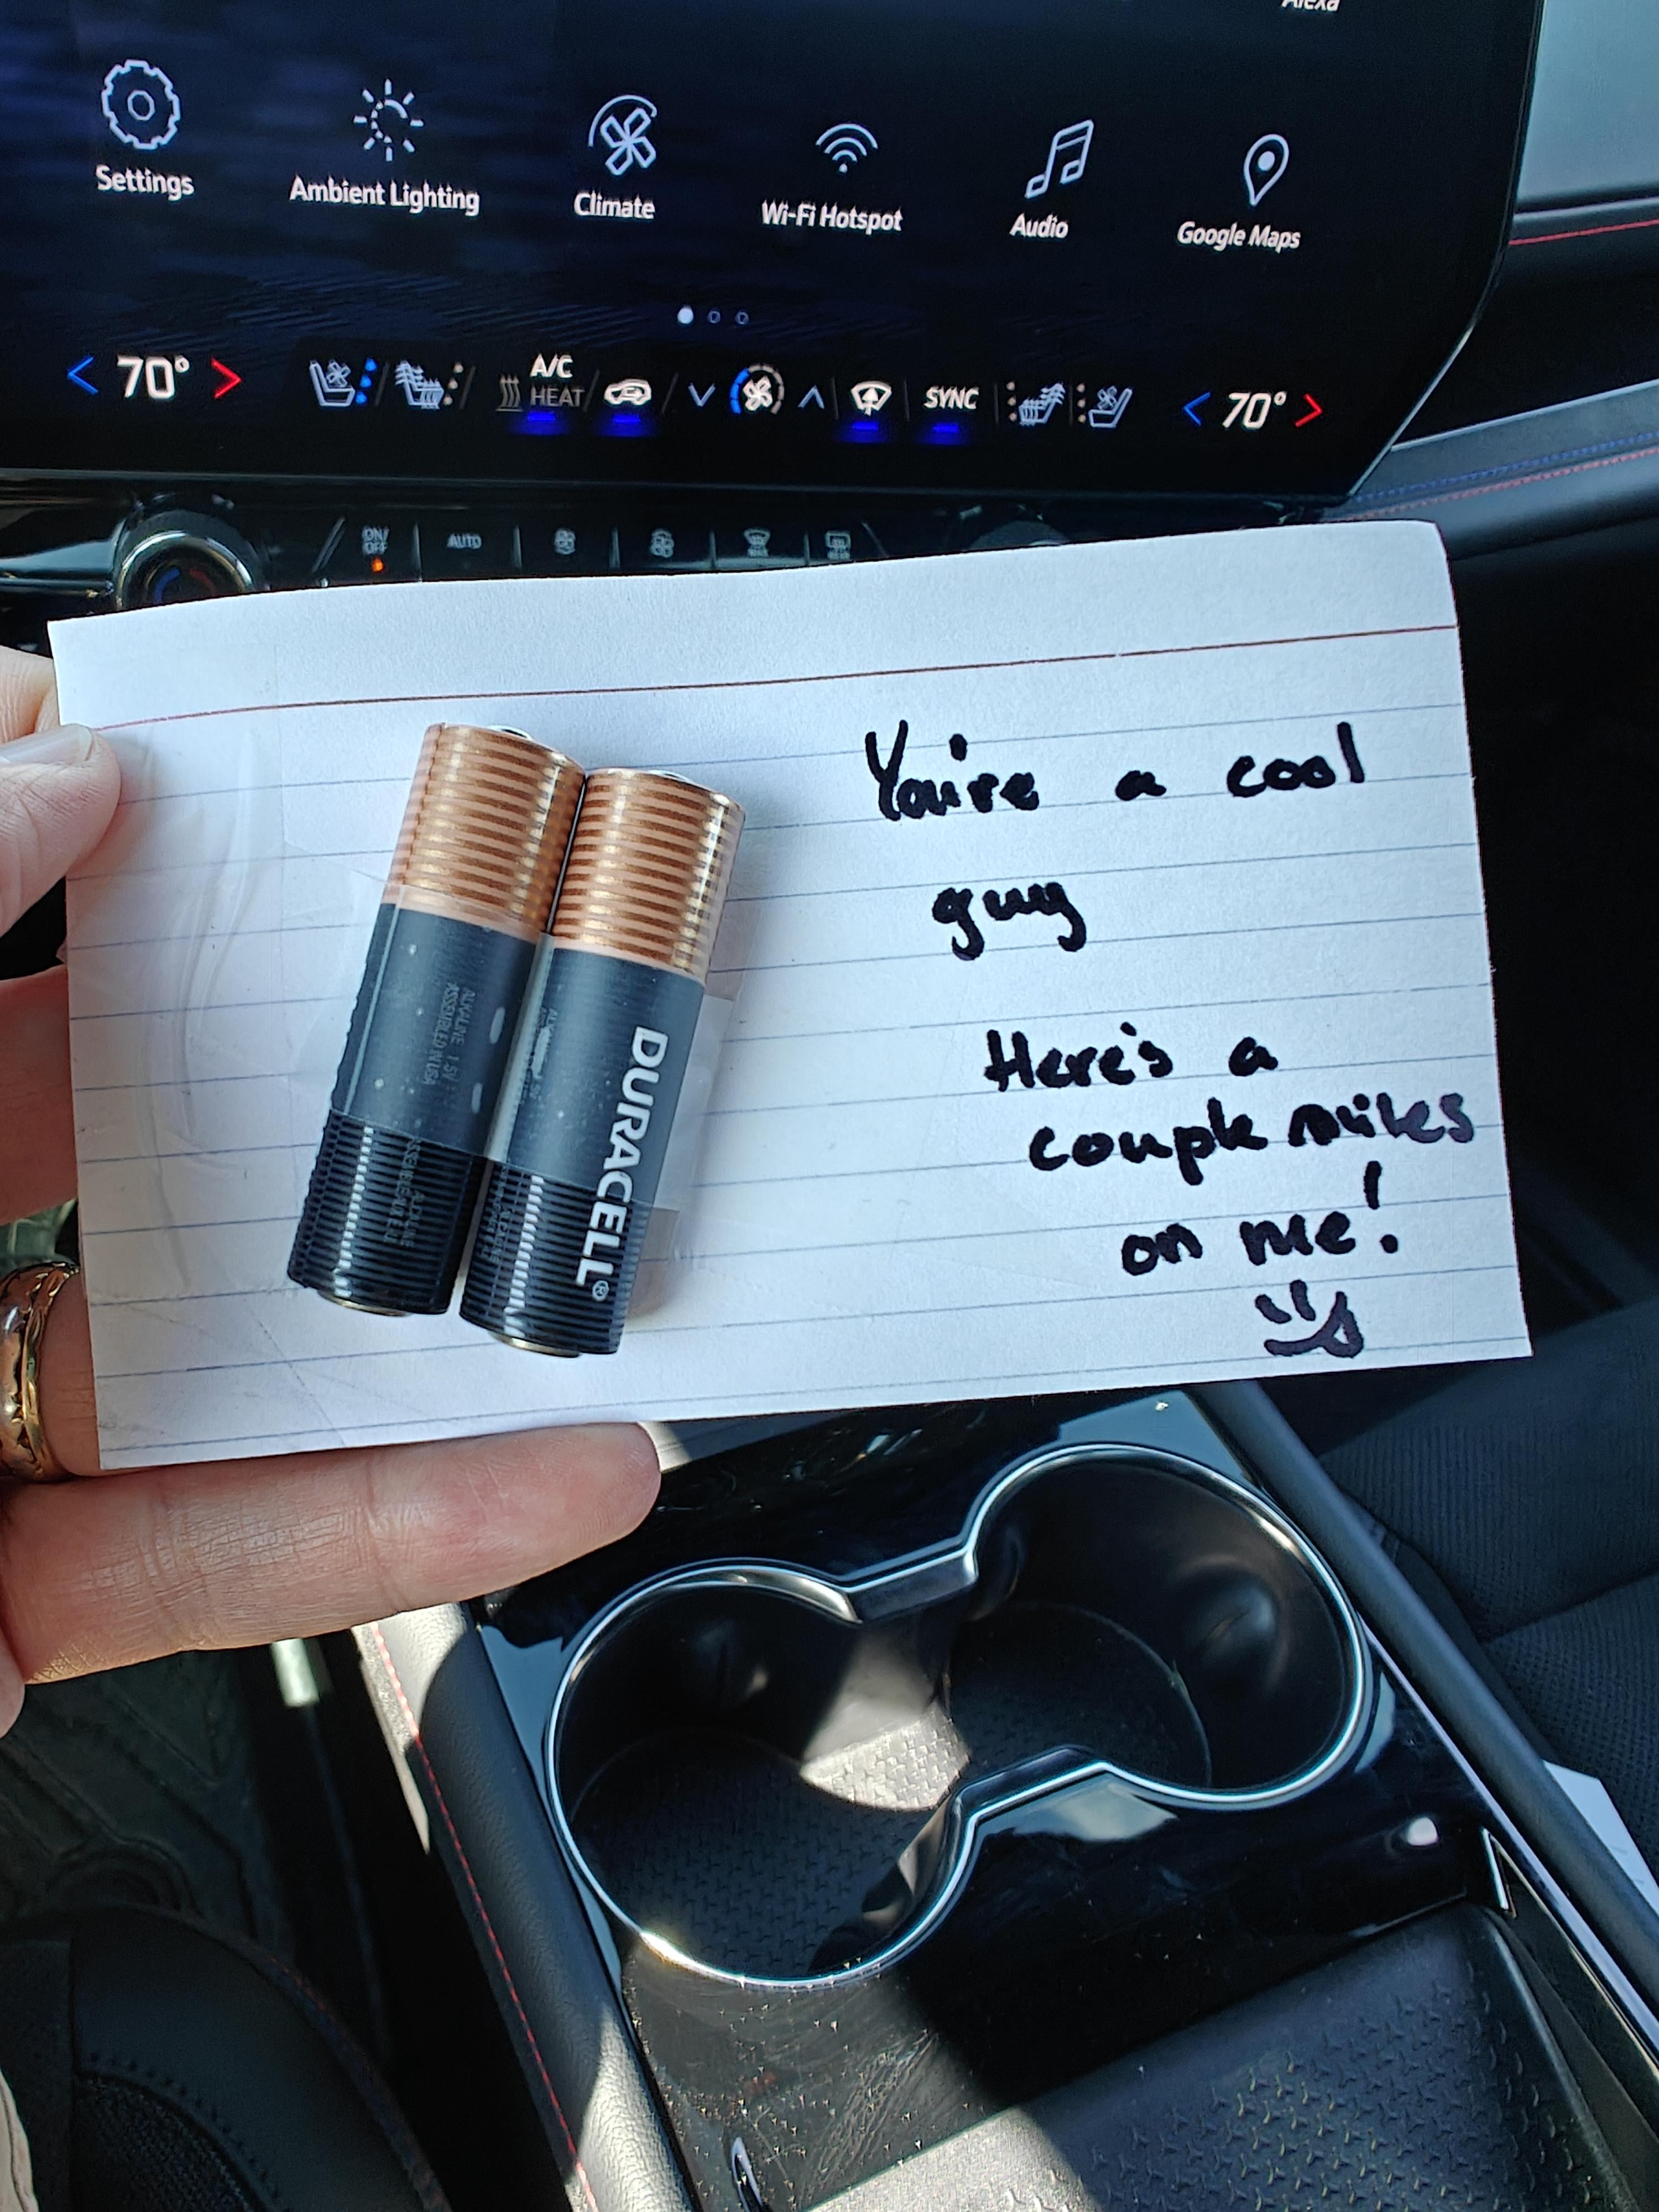 Alexa
Settings
Ambient Lighting
Climate
Wi-Fi Hotspot
Audio
Google Maps
70°
A/C
HEAT
SYNC
70°
ON/
OFF
AUTO
MAX
REAR
You're a cool
guy
Here's a
couple miles
on me!
DURACELL®
ALKALINE 1.5V
ASSEMBLED IN USA